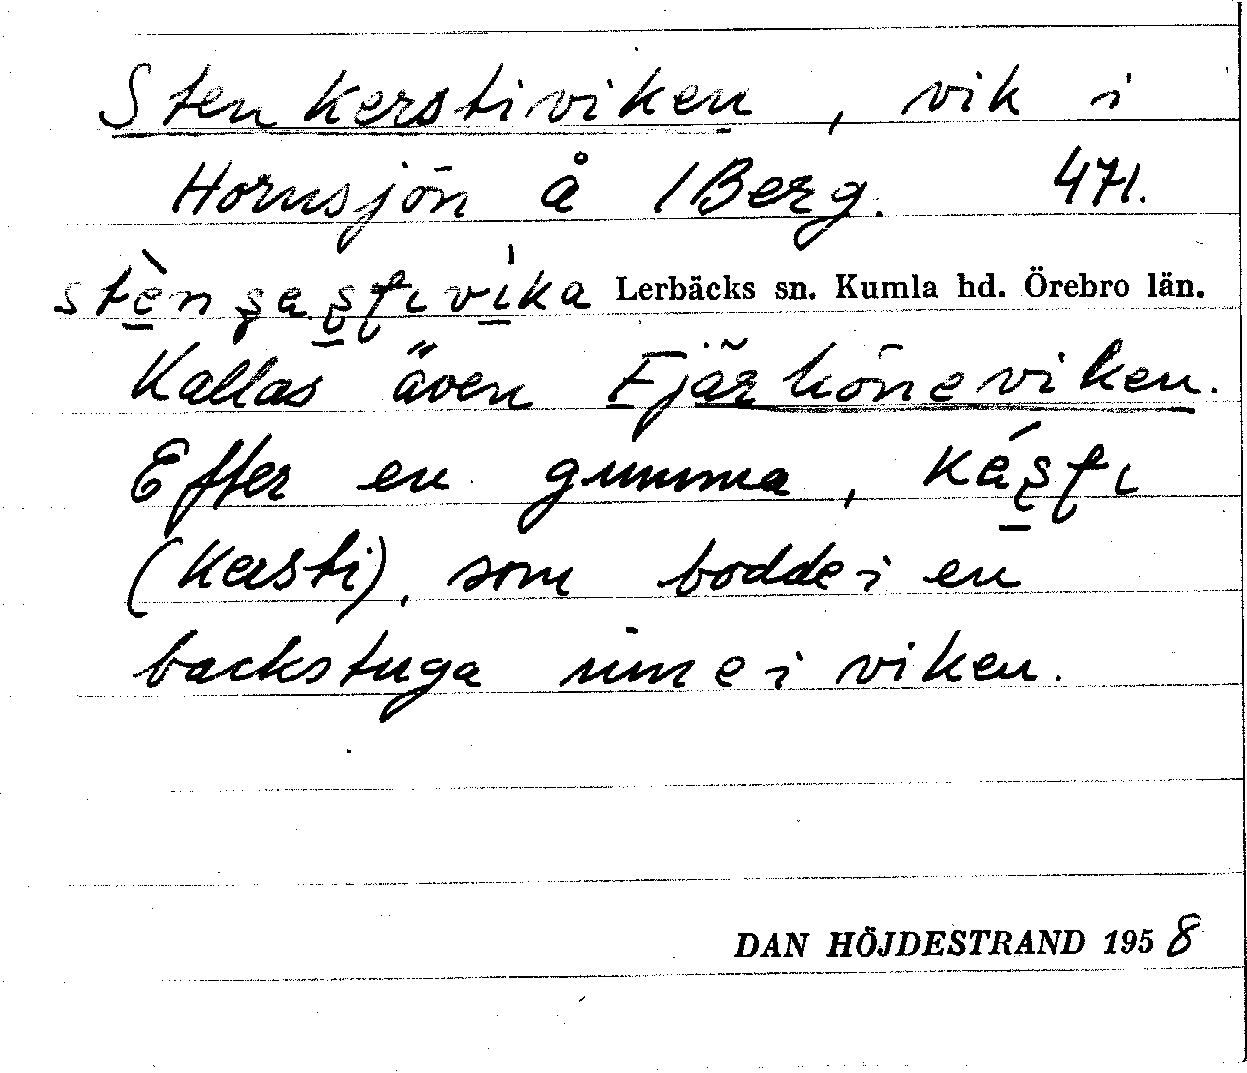 Stenkerstiviken, vik i
Hornsjön å 1 Berg. 471.
Lerbäcks sn. Kumla hd. Örebro län.
Kallas även Fjärhöneviken.
Efter en gumma,
(Kersti), som bodde i en
backstuga inne i viken.
DAN HÖJDESTRAND 1958